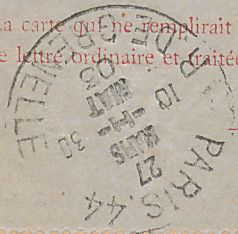 La carte qui ne remplirait
e lettre ordinaire et traitée
PARIS.44
27
MARS
10 H 30
MAT
R. DE GRENELLE